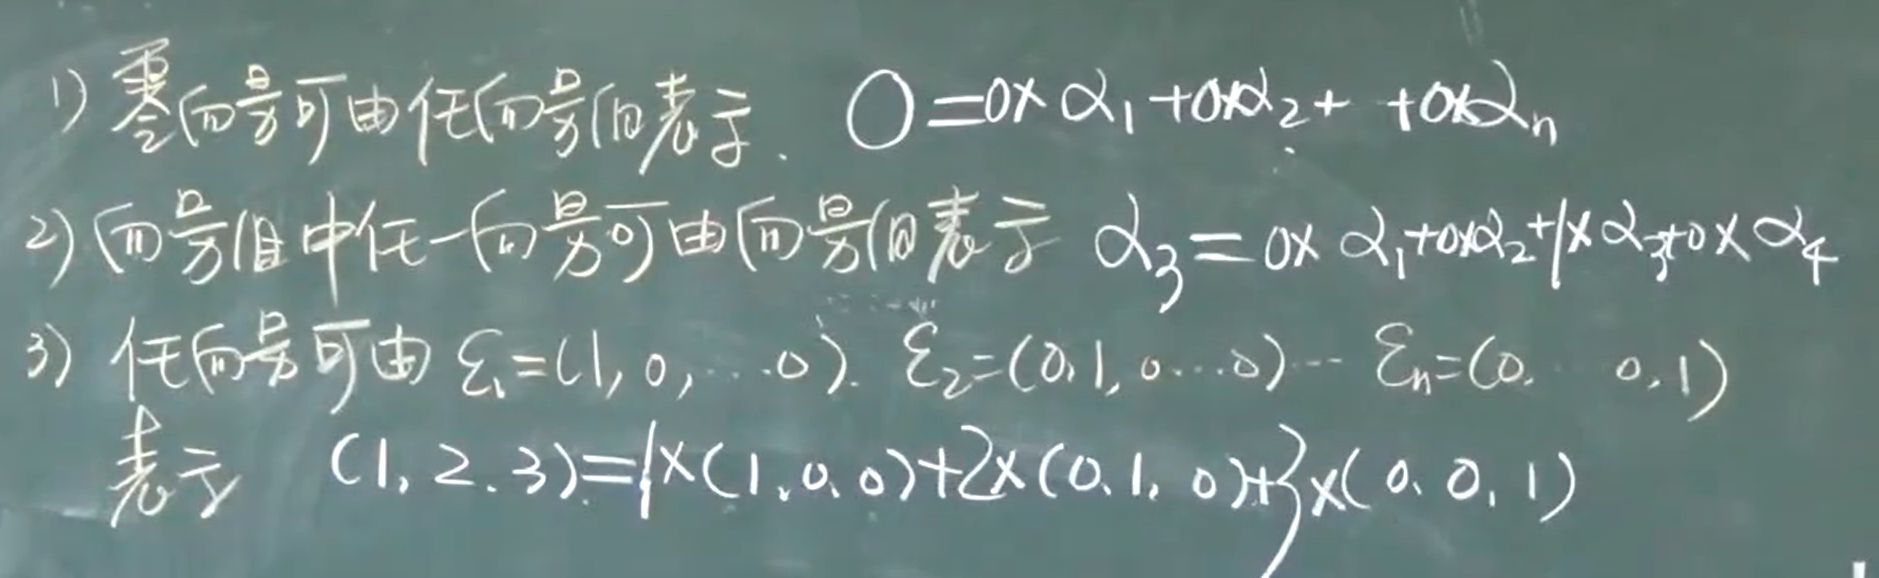 1) 零向量可由任向量组表示. 0=0×α₁+0×α₂+ +0×αₙ
2) 向量组中任一向量可由向量组表示 α₃=0×α₁+0×α₂+1×α₃+0×α₄
3) 任向量可由 ε₁=(1,0,...0). ε₂=(0,1,0...0)... εₙ=(0, ... 0,1)
表示 (1,2,3)=1×(1,0,0)+2×(0,1,0)+3×(0,0,1)